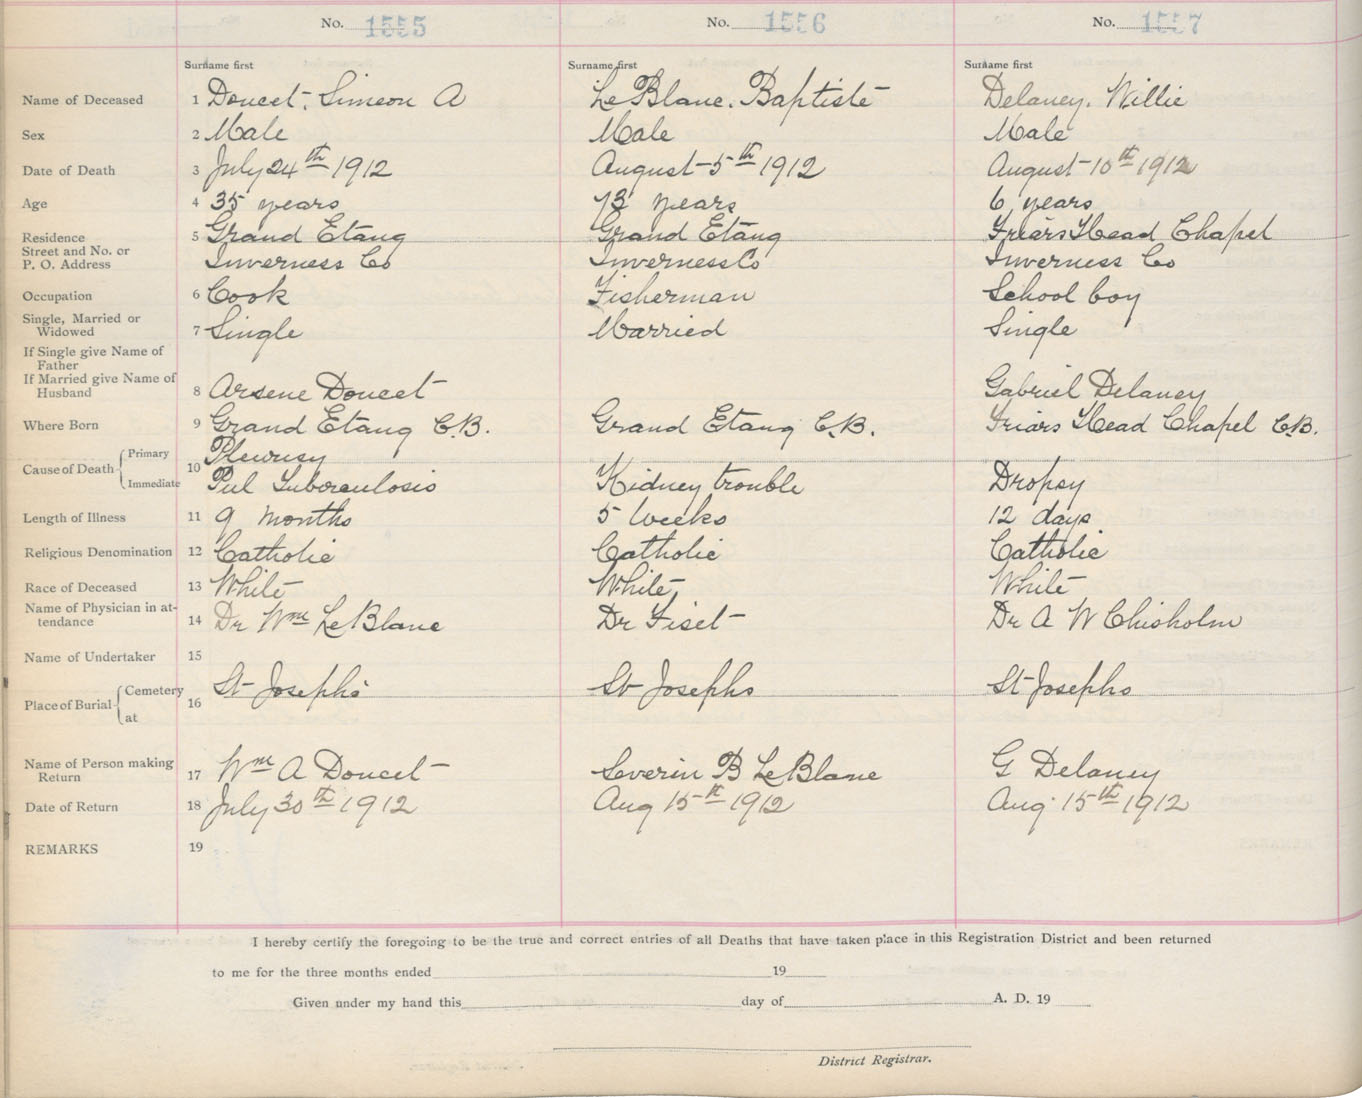 No. 1555 No. 1556 No. 1557
Surname first Surname first Surname first
Name of Deceased 1 Doucet, Simeon A LeBlanc, Baptiste Delaney, Willie
Sex 2 Male Male Male
Date of Death 3 July 24th 1912 August 5th 1912 August 10th 1912
Age 4 35 years 73 years 6 years
Residence 5 Grand Etang Grand Etang Friars Head Chapel
Street and No. or
P. O. Address Inverness Co Inverness Co Inverness Co
Occupation 6 Cook Fisherman School boy
Single, Married or
Widowed 7 Single Married Single
If Single give Name of
Father
If Married give Name of
Husband 8 Arsene Doucet Gabriel Delaney
Where Born 9 Grand Etang C.B. Grand Etang C.B. Friars Head Chapel C.B.
Cause of Death Primary 10 Pleurisy
Immediate Pul Tuberculosis Kidney trouble Dropsy
Length of Illness 11 9 months 5 weeks 12 days
Religious Denomination 12 Catholic Catholic Catholic
Race of Deceased 13 White White White
Name of Physician in at-
tendance 14 Dr Wm LeBlanc Dr Fiset Dr A W Chisholm
Name of Undertaker 15
Place of Burial Cemetery 16 St Josephs St Josephs St Josephs
at
Name of Person making
Return 17 Wm A Doucet Severin B LeBlanc G Delaney
Date of Return 18 July 30th 1912 Aug 15th 1912 Aug 15th 1912
REMARKS 19
I hereby certify the foregoing to be the true and correct entries of all Deaths that have taken place in this Registration District and been returned
to me for the three months ended 19
Given under my hand this day of A. D. 19
District Registrar.